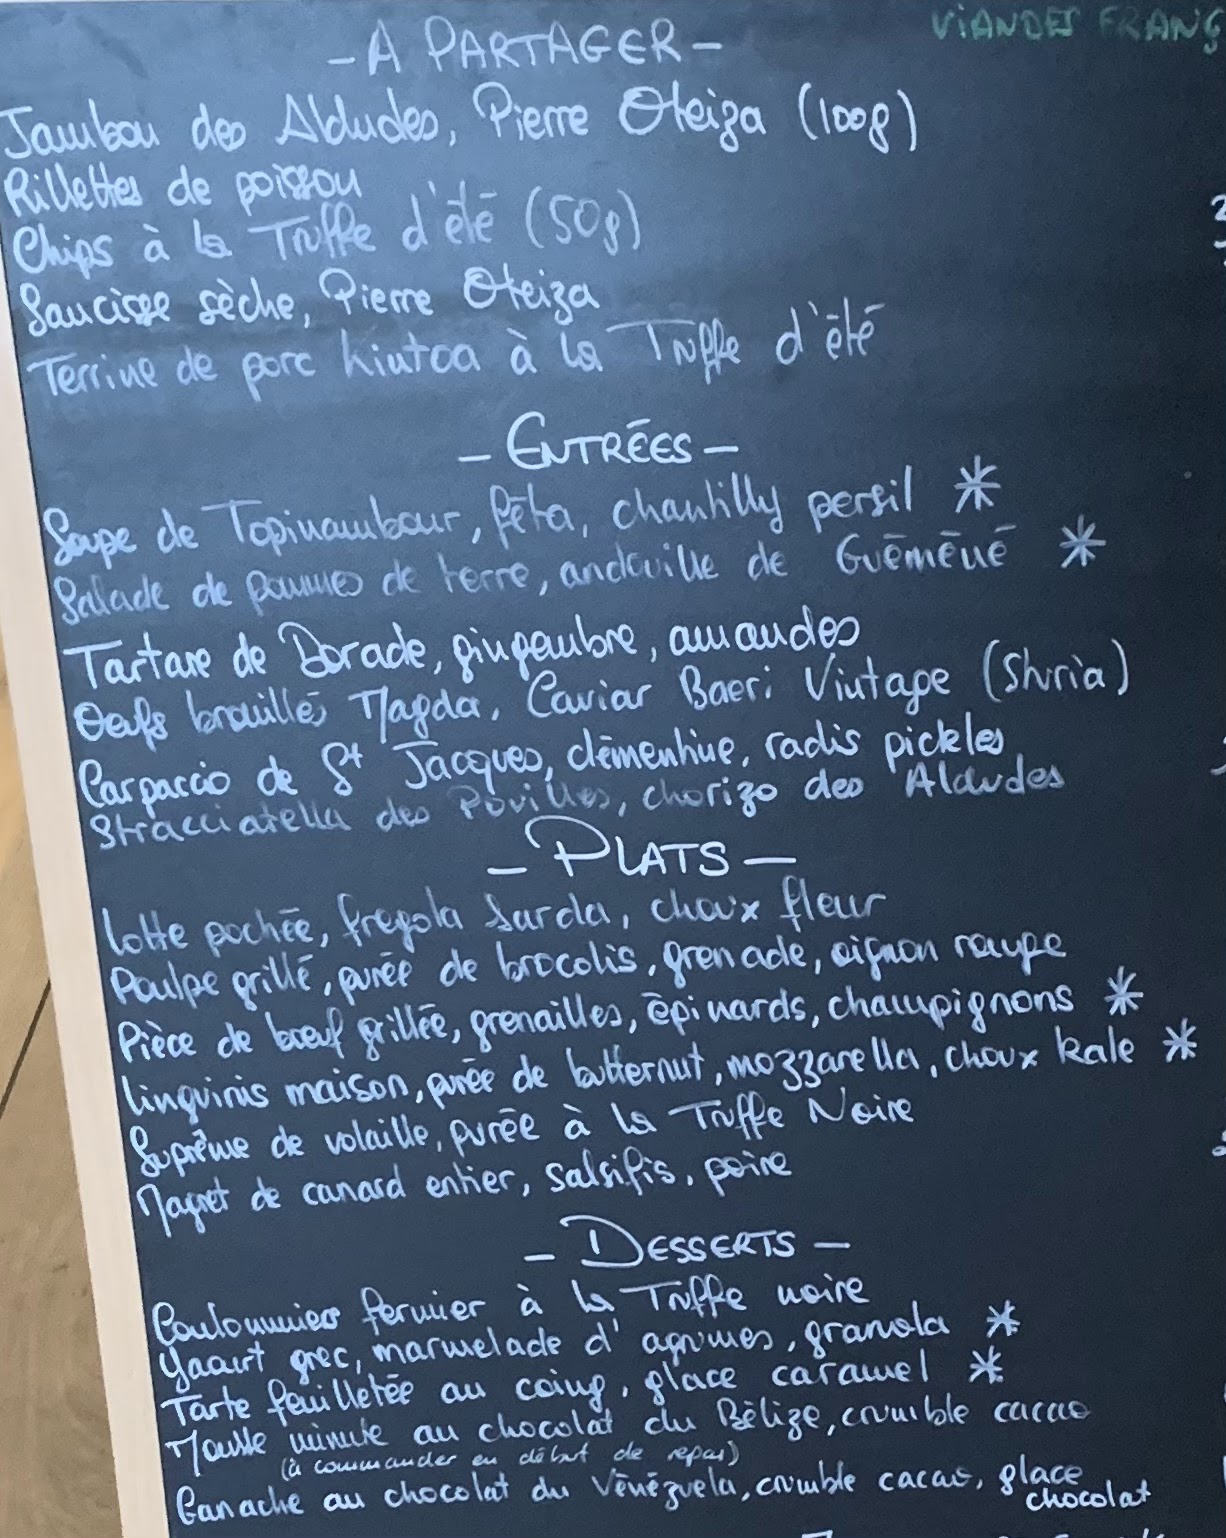 VIANDES FRANÇ
- A PARTAGER -
Jambon des Aldudes, Pierre Oteiza (100g)
Rillettes de poisson
Chips à la Truffe d'été (50g)
Saucisse sèche, Pierre Oteiza
Terrine de porc kintoa à la Truffe d'été
- ENTRÉES -
Soupe de Topinambour, féta, chantilly persil *
Salade de pommes de terre, andouille de Guéméné *
Tartare de Dorade, gingembre, amandes
Oeufs brouillés Magda, Caviar Baeri Vintage (Sturia)
Carpaccio de St Jacques, clémentine, radis pickles
Stracciatella des Pouilles, chorizo des Aldudes
- PLATS -
Lotte pochée, fregola sarda, choux fleur
Poulpe grillé, purée de brocolis, grenade, oignon rouge
Pièce de bœuf grillée, grenailles, épinards, champignons *
Linguinis maison, purée de butternut, mozzarella, choux kale *
Suprême de volaille, purée à la Truffe Noire
Magret de canard entier, salsifis, poire
- DESSERTS -
Coulommiers fermier à la Truffe noire
Yaourt grec, marmelade d'agrumes, granola *
Tarte feuilletée au coing, glace caramel *
Mousse minute au chocolat du Bélize, crumble cacao
(à commander en début de repas)
Ganache au chocolat du Vénézuela, crumble cacao, glace
chocolat